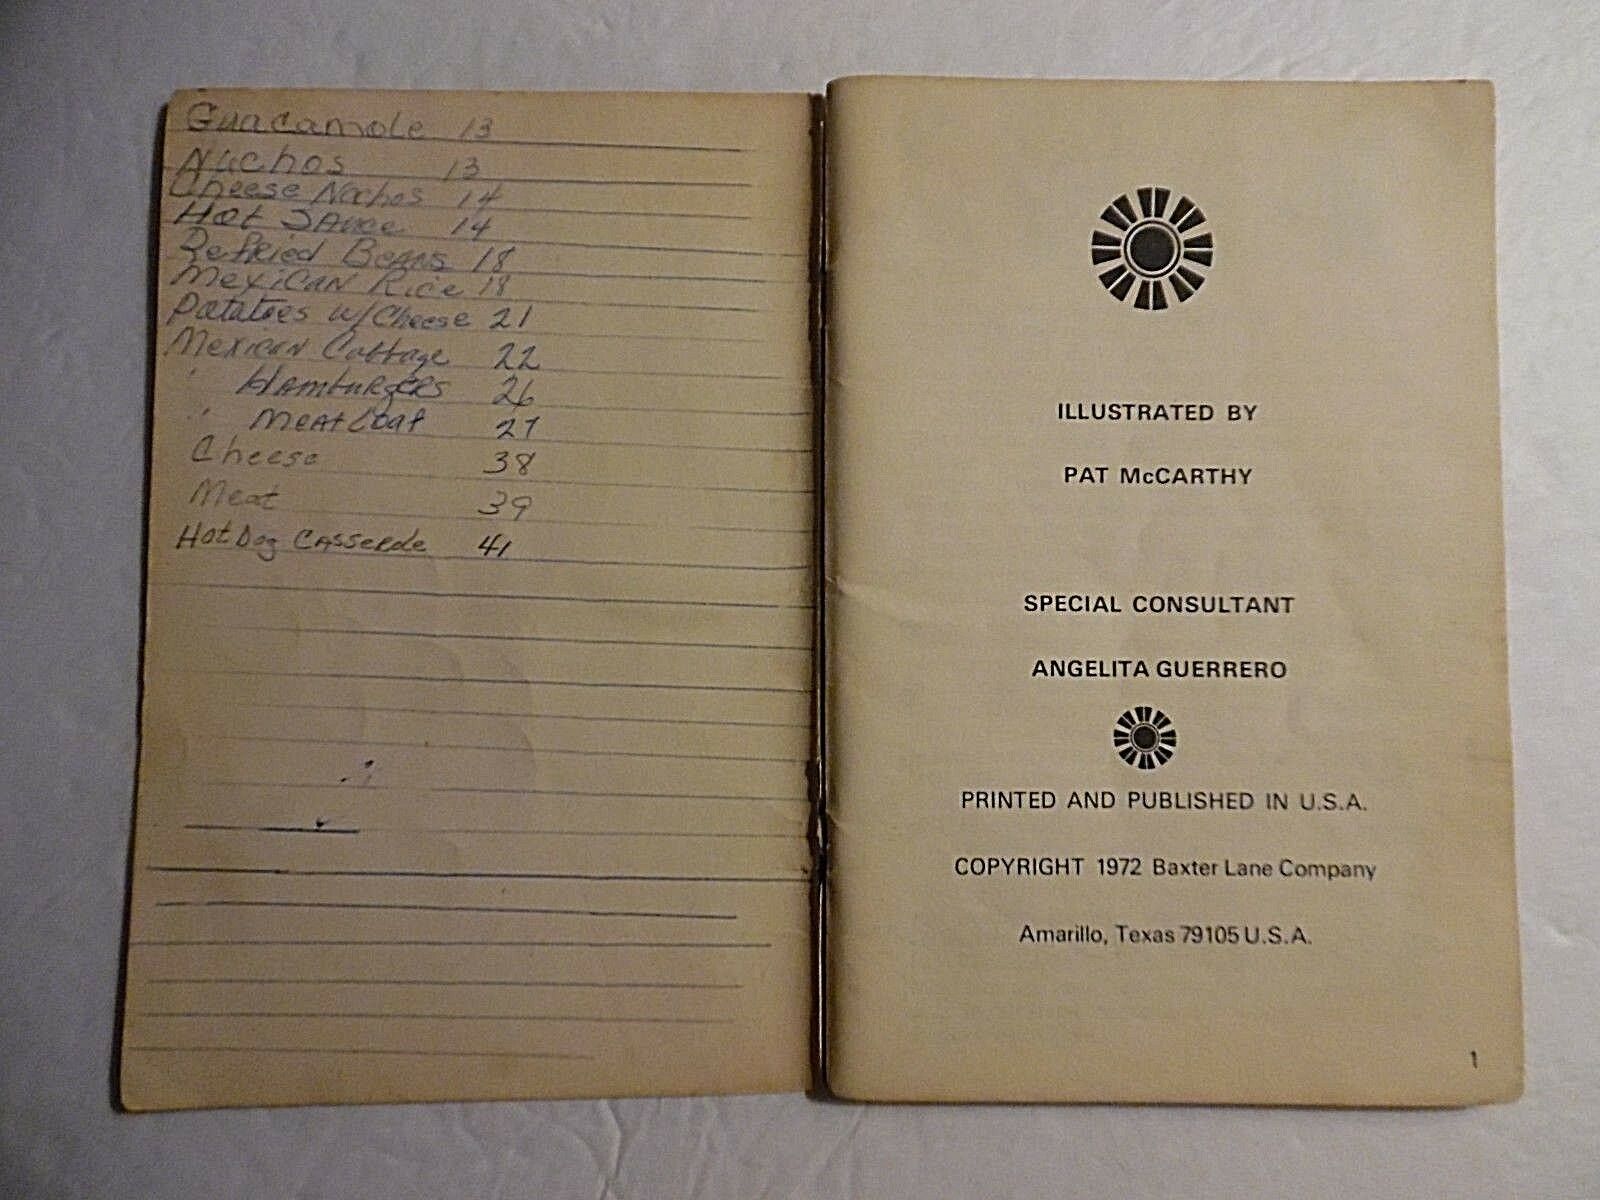 Guacamole 13
Nachos 13
Cheese Nachos 14
Hot Sauce 14
Refried Beans 18
Mexican Rice 18
Patatoes w/Cheese 21
Mexican Cabbage 22
" Hamburgers 26
" Meat Loaf 27
Cheese 38
Meat 39
Hot Dog Casserole 41
ILLUSTRATED BY
PAT McCARTHY
SPECIAL CONSULTANT
ANGELITA GUERRERO
PRINTED AND PUBLISHED IN U.S.A.
COPYRIGHT 1972 Baxter Lane Company
Amarillo, Texas 79105 U.S.A.
1